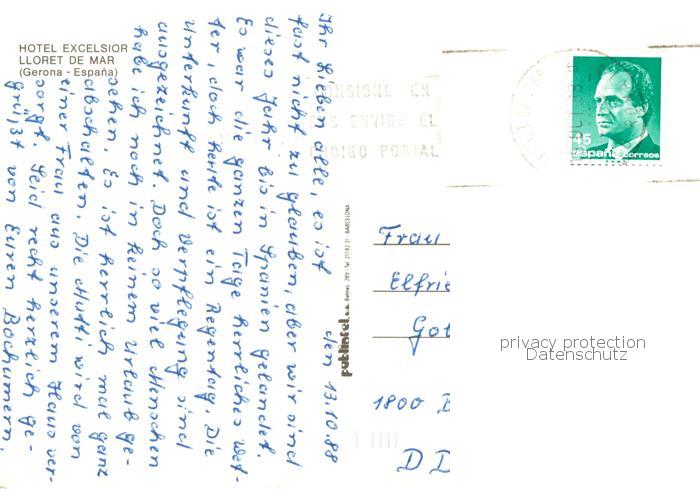 HOTEL EXCELSIOR
LLORET DE MAR
(Gerona - España)
den 13.10.88
Ihr lieben alle, es ist
fast nicht zu glauben, aber wir sind
dieses Jahr bis in Spanien gelandet.
Es war die ganzen Tage herrliches Wet-
ter, doch heute ist ein Regentag. Die
Unterkunft und Verpflegung sind
ausgezeichnet. Doch so viel Menschen
habe ich noch in keinem Urlaub ge-
sehen. Es ist herrlich mal ganz
abschalten. Die Mutti wird von
einer Frau aus unserem Haus ver-
sorgt. Seid recht herzlich ge-
grüßt von Euren Bochumern.
CONSIGNE EN
ENVIOS EL
CODIGO POSTAL
45
españa correos
publintel, s.a.
BARCELONA
Frau
Elfrie
Got
1800 B
DD
privacy protection
Datenschutz